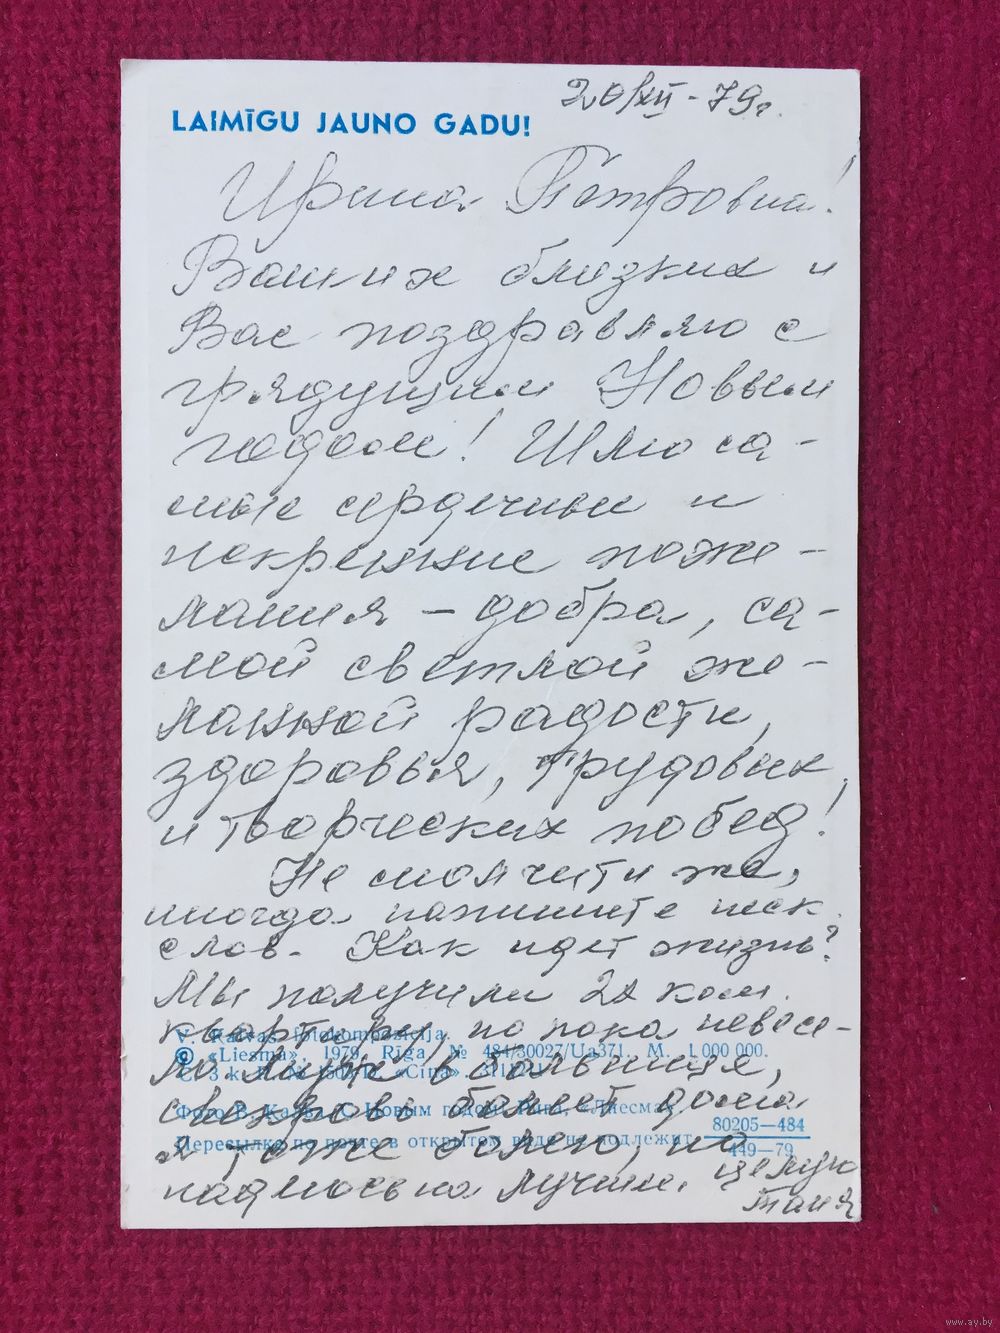 20/XII - 79г.
LAIMĪGU JAUNO GADU!
Ирина Петровна!
Ваших близких и
Вас поздравляю с
грядущим Новым
годом! Шлю са-
мые сердечные и
искренние поже-
лания - добра, са-
мой светлой же-
ланной радости,
здоровья, трудовых
и творческих побед!
Не молчите же,
иногда напишите неск.
слов. Как идет жизнь?
Мы получили 2х ком.
квартиру, но пока невесе-
V. Kalvas fotokompozīcija.
© «Liesma», 1979, Rīga, № 484/30027/Ua371. M. 1 000 000.
ло муж в больнице,
«Cīņa».
свекровь болеет дома
Новым годом! Рига, «Лиесма»
80205—484
Пересылке по почте в открытом виде не подлежит.
449—79
я тоже болею, но
надеюсь на лучшее. целую
Таня
www.ay.by